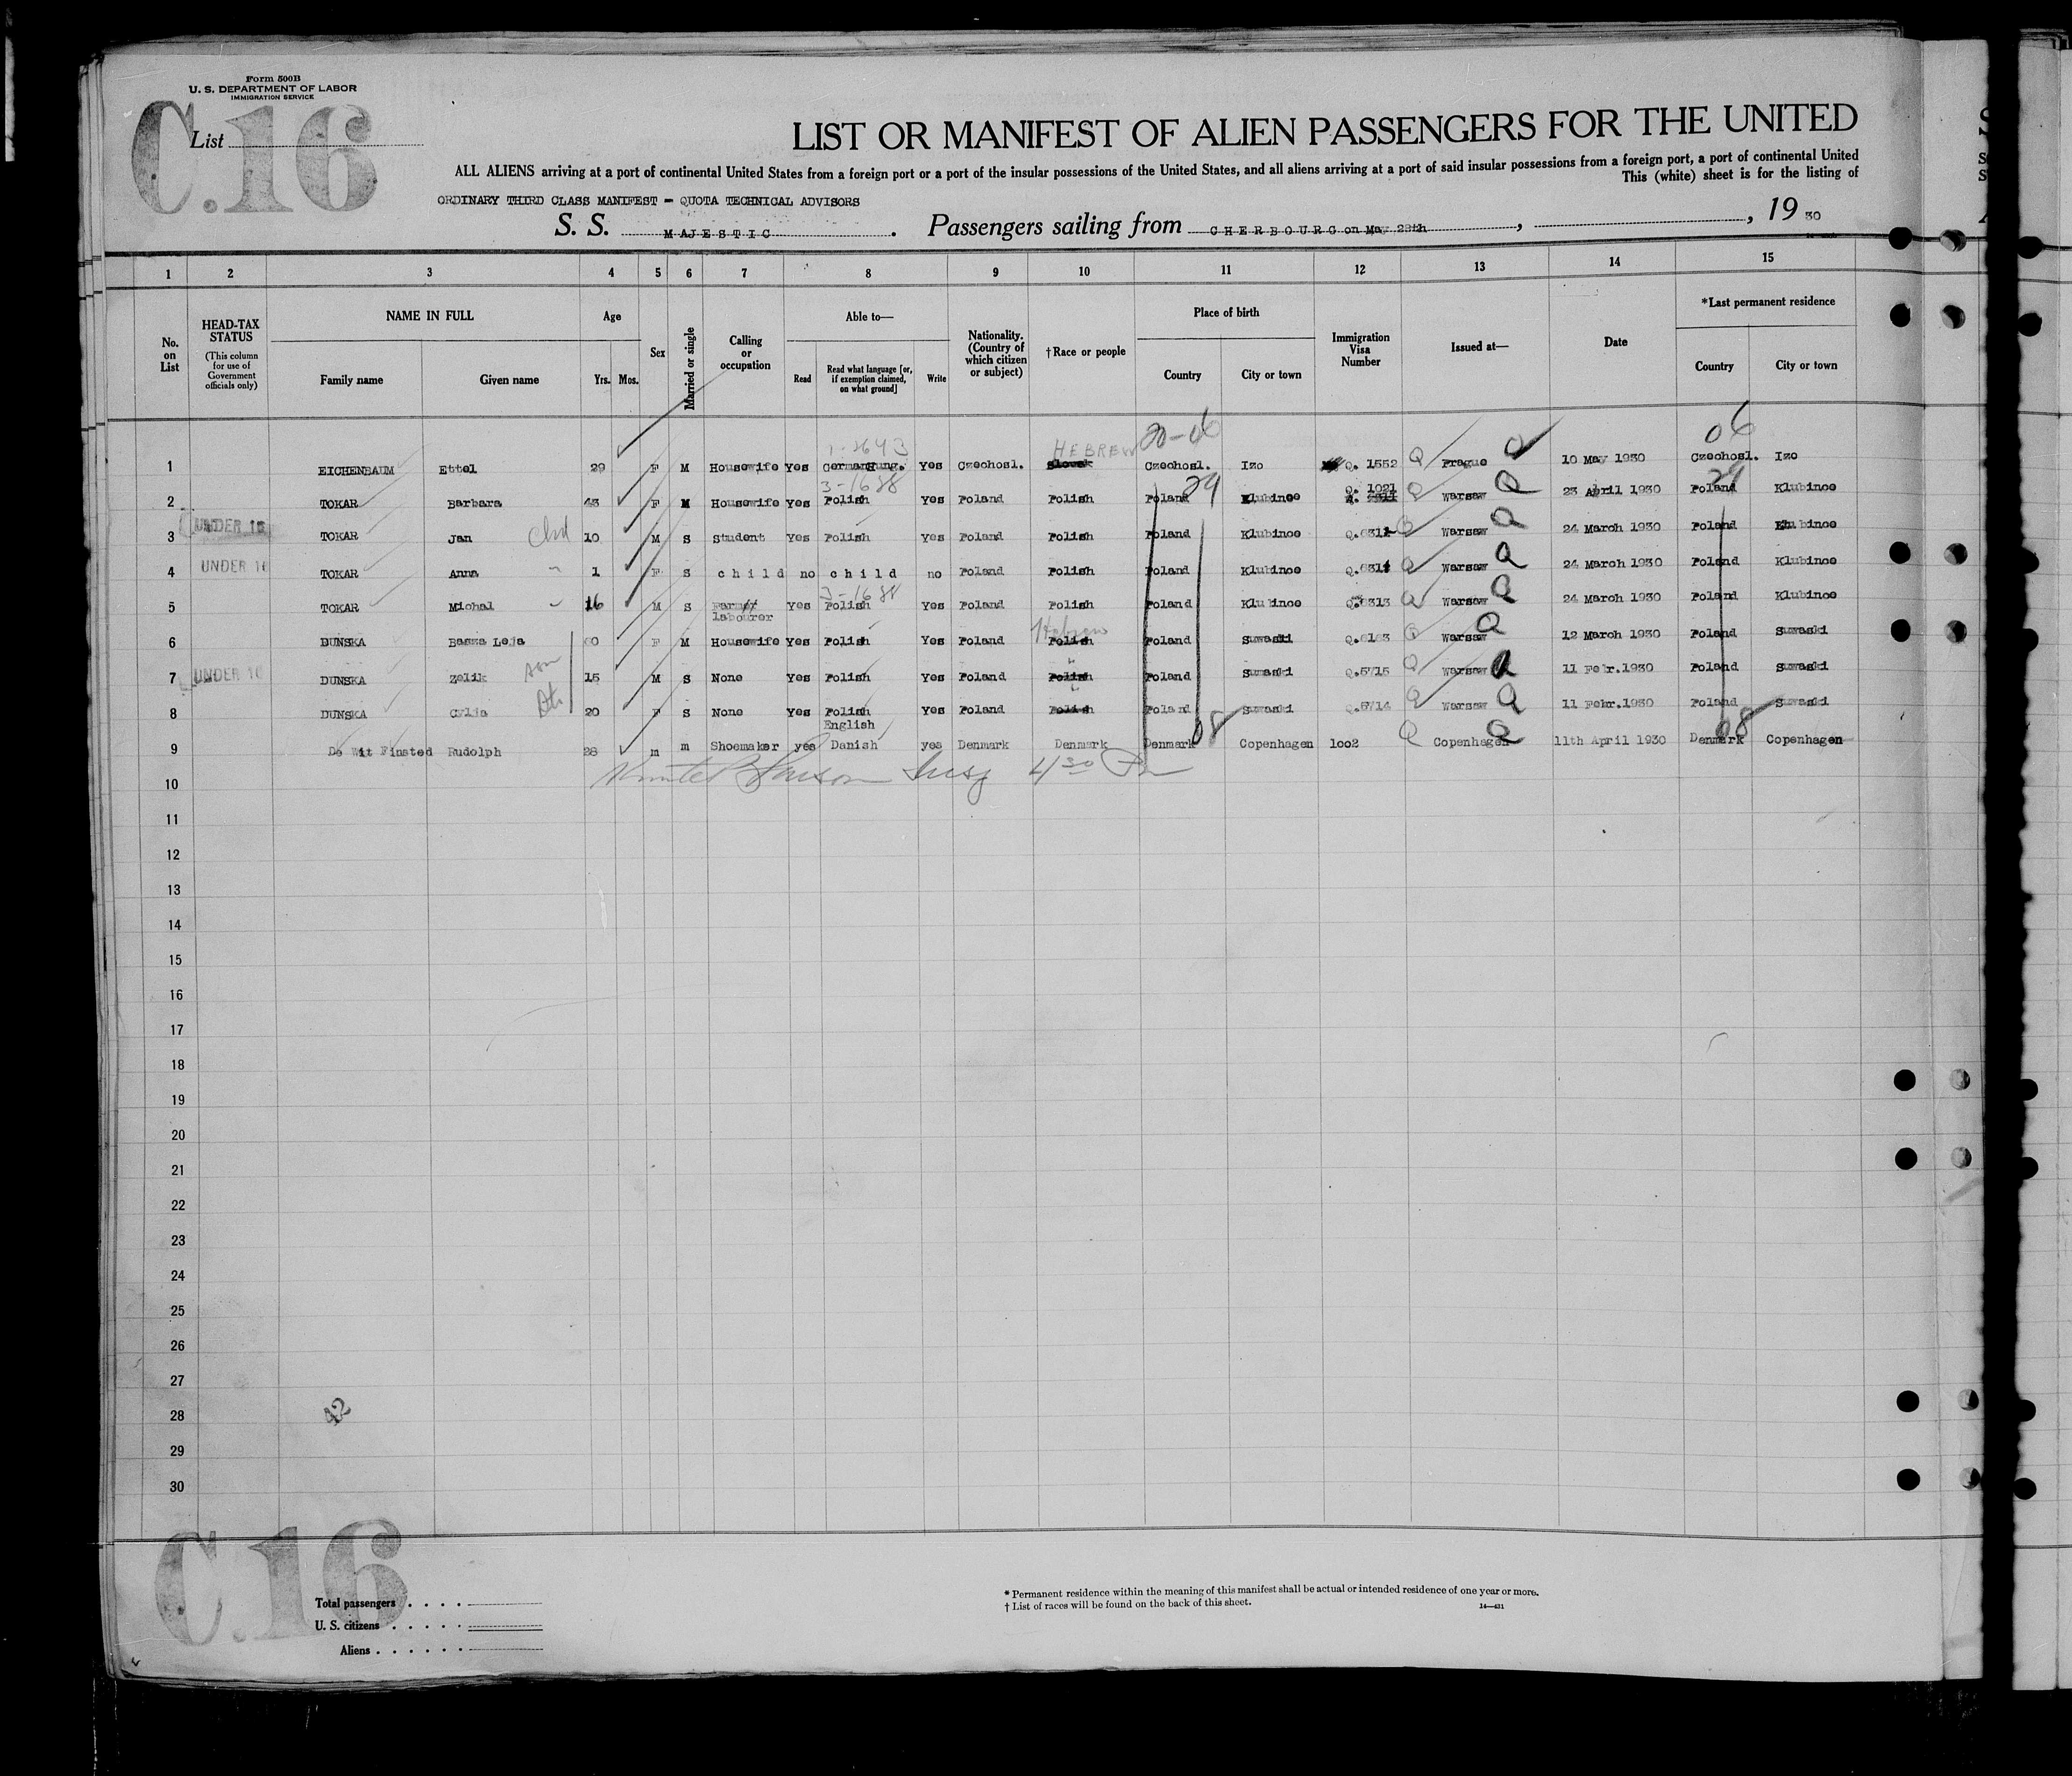 Form 500B
U. S. DEPARTMENT OF LABOR
IMMIGRATION SERVICE
C.16
List
LIST OR MANIFEST OF ALIEN PASSENGERS FOR THE UNITED
ALL ALIENS arriving at a port of continental United States from a foreign port or a port of the insular possessions of the United States, and all aliens arriving at a port of said insular possessions from a foreign port, a port of continental United
This (white) sheet is for the listing of
ORDINARY THIRD CLASS MANIFEST - QUOTA TECHNICAL ADVISORS
S. S. MAJESTIC. Passengers sailing from CHERBOURG on May 28th, , 19 30
1 2 3 4 5 6 7 8 9 10 11 12 13 14 15
No. on List
HEAD-TAX STATUS
(This column for use of Government officials only)
NAME IN FULL
Family name Given name
Age
Yrs. Mos.
Sex
Married or single
Calling or occupation
Able to—
Read
Read what language [or, if exemption claimed, on what ground]
Write
Nationality. (Country of which citizen or subject)
†Race or people
Place of birth
Country City or town
Immigration Visa Number
Issued at—
Date
*Last permanent residence
Country City or town
1-2643 HEBREW 20-06 06
1 EICHENBAUM Ettel 29 F M Housewife Yes German Hung. Yes Czechosl. Slovak Czechosl. Izo Q. 1552 Q Prague Q 10 May 1930 Czechosl. Izo
3-1688 29 29
2 TOKAR Barbara 43 F M Housewife Yes Polish Yes Poland Polish Poland Klubince Q. 1021 Q Warsaw Q 23 April 1930 Poland Klubince
UNDER 16
3 TOKAR Jan Chd 10 M S Student Yes Polish Yes Poland Polish Poland Klubince Q.6312 Q Warsaw Q 24 March 1930 Poland Klubince
UNDER 16
4 TOKAR Anna " 1 F S child no child no Poland Polish Poland Klubince Q.6314 Q Warsaw Q 24 March 1930 Poland Klubince
3-1688
5 TOKAR Michal " 16 M S Farm labourer Yes Polish Yes Poland Polish Poland Klubince Q.6313 Q Warsaw Q 24 March 1930 Poland Klubince
Hebrew
6 DUNSKA Basza Leja 60 F M Housewife Yes Polish Yes Poland Polish Poland Suwaski Q.6163 Q Warsaw Q 12 March 1930 Poland Suwaski
UNDER 16
7 DUNSKA Zelik son 15 M S None Yes Polish Yes Poland Polish Poland Suwaski Q.5715 Q Warsaw Q 11 Febr.1930 Poland Suwaski
8 DUNSKA Cylia Dtr 20 F S None Yes Polish Yes Poland Polish Poland Suwaski Q.5714 Q Warsaw Q 11 Febr.1930 Poland Suwaski
English 08 08
9 De Wit Finsted Rudolph 28 m m Shoemaker yes Danish yes Denmark Denmark Denmark Copenhagen 1002 Q Copenhagen Q 11th April 1930 Denmark Copenhagen
10 4 30
11
12
13
14
15
16
17
18
19
20
21
22
23
24
25
26
27
28 42
29
30
C.16
Total passengers . . . .
U. S. citizens . . . . .
Aliens . . . . . .
* Permanent residence within the meaning of this manifest shall be actual or intended residence of one year or more.
† List of races will be found on the back of this sheet. 14—431